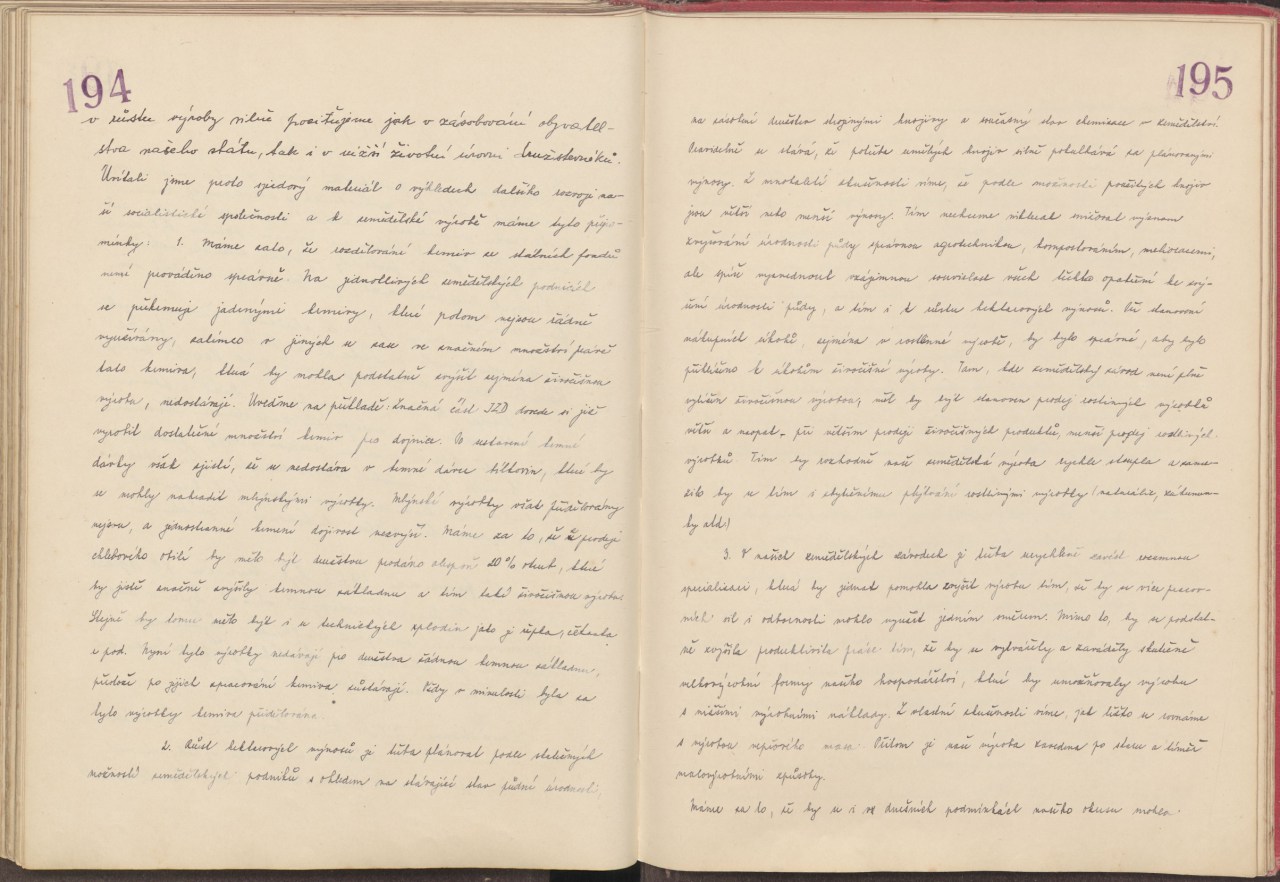 194
v růstu výroby silně pociťujeme jak v zásobování obyvatel-
stva našeho státu, tak i v nižší životní úrovni družstevníků.
Uvítali jsme proto sjezdový materiál o výhledech dalšího rozvoje na-
ší socialistické společnosti a k zemědělské výrobě máme tyto připo-
mínky: 1. Máme zato, že rozdělování krmiv ze státních fondů
není prováděno správně. Na jednotlivých zemědělských podnicích
se překrmuje jadernými krmivy, které potom nejsou řádně
využívány, zatímco v jiných se zase ve značném množství právě
tato krmiva, která by mohla podstatně zvýšit zejména živočišnou
výrobu, nedostávají. Uveďme na příkladě: Značná část JZD dovede si již
vyrobit dostatečné množství krmiv pro dojnice. O sestavení krmné
dávky však zjistí, že se nedostává v krmné dávce bílkovin, které by
se mohly nahradit mlýnskými výrobky. Mlýnské výrobky však přidělovány
nejsou, a jednostranné krmení dojivost nezvýší. Máme za to, že z prodeje
chlebového obilí by mělo být družstvu prodáno alespoň 20% otrub, které
by jistě značně zvýšily krmnou základnu a tím také živočišnou výrobu.
Stejně by tomu mělo být i u technických plodin jako je řepka, čekanka
a pod. Nyní tyto výrobky nedávají pro družstva řádnou krmnou základnu,
přitom po jejich zpracování krmiva zůstávají. Vždy v minulosti byla za
tyto výrobky krmiva přidělována.
2. Růst hektarových výnosů je třeba plánovat podle skutečných
možností zemědělských podniků s ohledem na stávající stav půdní úrodnosti,
195
na zásobení družstev strojenými hnojivy a současný stav chemizace zemědělství.
Pravidelně se stává, že potřeba umělých hnojiv silně pokulhává za plánovanými
výnosy. Z mnohaleté zkušenosti víme, že podle možností použitých hnojiv
jsou větší nebo menší výnosy. Tím nechceme nikterak snižovat význam
zvyšování úrodnosti půdy správnou agrotechnikou, kompostováním, melioracemi,
ale spíše vyzvednout vzájemnou souvislost všech těchto opatření ke zvý-
šení úrodnosti půdy, a tím i k růstu hektarových výnosů. Při stanovení
nákupních úkolů, zejména v rostlinné výrobě, by bylo správné, aby bylo
přihlíženo k úkolům živočišné výroby. Tam, kde zemědělský závod není plně
vytížen živočišnou výrobou, měl by být stanoven prodej rostlinných výrobků
větší a naopak - při větším prodeji živočišných produktů, menší prodej rostlinných
výrobků. Tím by rozhodně naše zemědělská výroba rychle stoupla a zame-
zilo by se tím i zbytečnému plýtvání rostlinnými výrobky (nedomláce,
by atd.)
3. V našich zemědělských závodech je třeba urychleně zavést rozumnou
specializaci, která by jednak pomohla zvýšit výrobu tím, že by se více pracov-
ních sil i odborností mohlo využít jedním směrem. Mimo to, by se podstat-
ně zvýšila produktivita práce tím, že by se vytvářely a zaváděly skutečné
velkovýrobní formy našeho hospodářství, které by umožňovaly výrobu
s nižšími výrobními náklady. Z vlastní zkušenosti víme, jak těžko se srovnáme
s výrobou vepřového masa. Přitom je naše výroba zavedena po staru a téměř
malovýrobními způsoby.
Máme za to, že by se i ve dnešních podmínkách našeho okresu mohla